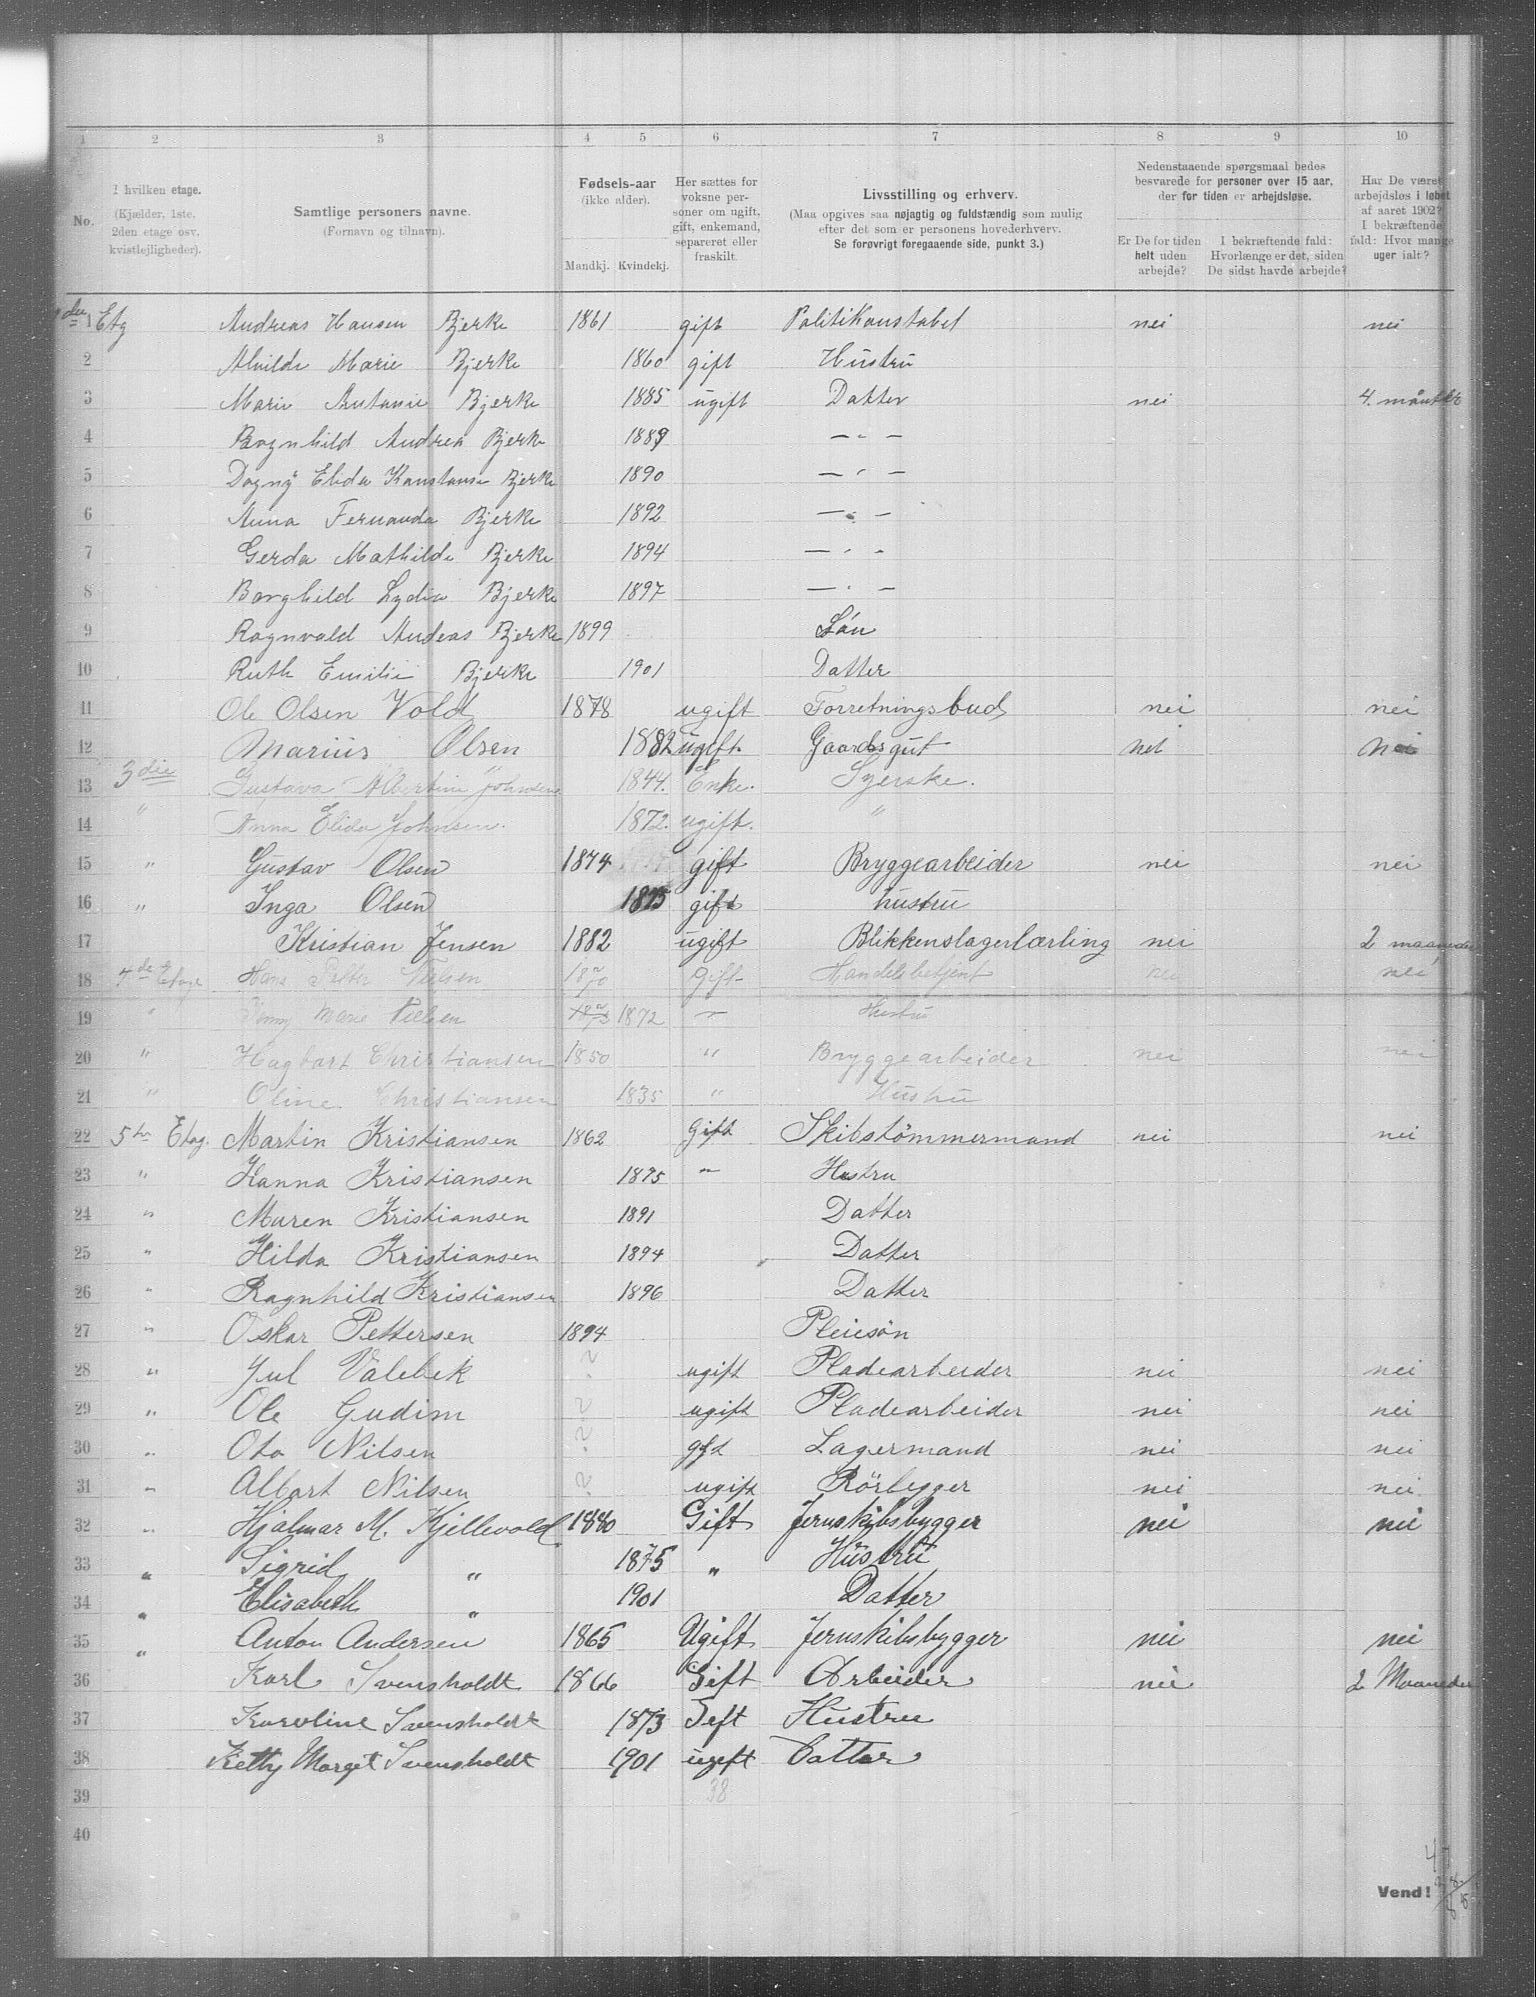 1 2 3 4 5 6 7 8 9 10
No.
I hvilken etage.
(Kjælder, 1ste.
2den etage osv.
kvistlejligheder).
Samtlige personers navne.
(Fornavn og tilnavn).
Fødsels-aar
(ikke alder).
Mandkj. Kvindekj.
Her sættes for
voksne per-
soner om ugift,
gift, enkemand,
separeret eller
fraskilt.
Livsstilling og erhverv.
(Maa opgives saa nøjagtig og fuldstændig som mulig
efter det som er personens hovederhverv.
Se forøvrigt foregaaende side, punkt 3.)
Nedenstaaende spørgsmaal bedes
besvarede for personer over 15 aar,
der for tiden er arbejdsløse.
Er De for tiden
helt uden
arbejde?
I bekræftende fald:
Hvorlænge er det, siden
De sidst havde arbejde?
Har De været
arbejdsløs i løbet
af aaret 1902?
I bekræftende
fald: Hvor mange
uger ialt?
1 Etg Andreas Hansen Bjerke 1861 gift Politikonstabel nei nei
2 Alvilde Marie Bjerke 1860 gift Hustru
3 Marie Antonie Bjerke 1885 ugift Datter nei 4.
4 Ragnhild Andrea Bjerke 1889 — " —
5 Dagny Elida Konstanse Bjerke 1890 — " —
6 Anna Fernanda Bjerke 1892 — " —
7 Gerda Mathilde Bjerke 1894 — " —
8 Borghild Lydia Bjerke 1897 — " —
9 Ragnvald Andeas Bjerke 1899 Sön
10 Ruth Emilie Bjerke 1901 Datter
11 Ole Olsen Vold 1878 ugift Forretningsbud nei nei
12 Marius Olsen 1882 ugift. Gaardsgut nei nei
13 3die Gustava Albertine Johnsen 1844. Enke. Syerske.
14 " Anna Elida Johnsen. 1872. ugift. "
15 " Gustav Olsen 1874 gift Bryggearbeider nei nei
16 " Inga Olsen 1875 gift hustru
17 Kristian Jensen 1882 ugift Blikkenslagerlærling nei 2 maaneder
18 4de Etage Hans Petter Nielsen 1870 Gift Handelsbetjent nei nei
19 " Marie Nielsen 1872 — Hustru
20 " Hagbart Christiansen 1850 " Bryggearbeider nei nei
21 " Oline Christiansen 1835 " Hustru
22 5te Etag. Martin Kristiansen 1862 Gift Skibstömmermand nei nei
23 " Hanna Kristiansen 1875 " Hustru
24 " Maren Kristiansen 1891 Datter
25 " Hilda Kristiansen 1894 Datter
26 " Ragnhild Kristiansen 1896 Datter
27 " Oskar Pettersen 1894 Pleiesön
28 " Jul Valebek ? ugift Pladearbeider nei nei
29 " Ole Gudim ? ugift Pladearbeider nei nei
30 " Oto Nilsen ? gift Lagermand nei nei
31 " Albart Nilsen ? ugift Rörlegger nei nei
32 " Hjalmar M. Kjellevold 1880 Gift Jernskibsbygger nei nei
33 " Sigrid " 1875 " Hustru
34 " Elisabeth " 1901 Datter
35 " Anton Andersen 1865 Ugift Jernskibsbygger nei nei
36 Karl Svensholdt 1866 Gift Arbeider nei 2 Maaneder
37 Karoline Svensholdt 1873 Gift Hustru
38 Ketty Marget Svensholdt 1901 ugift Datter
39 38
40
Vend!